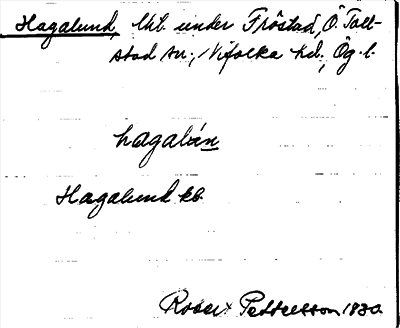 Hagalund, lht. under Fröstad, Ö. Toll-
stad sn., Vifolka hd., Ög. l.
hagalún
Hagalund kb.
Robert Pettersson 1930